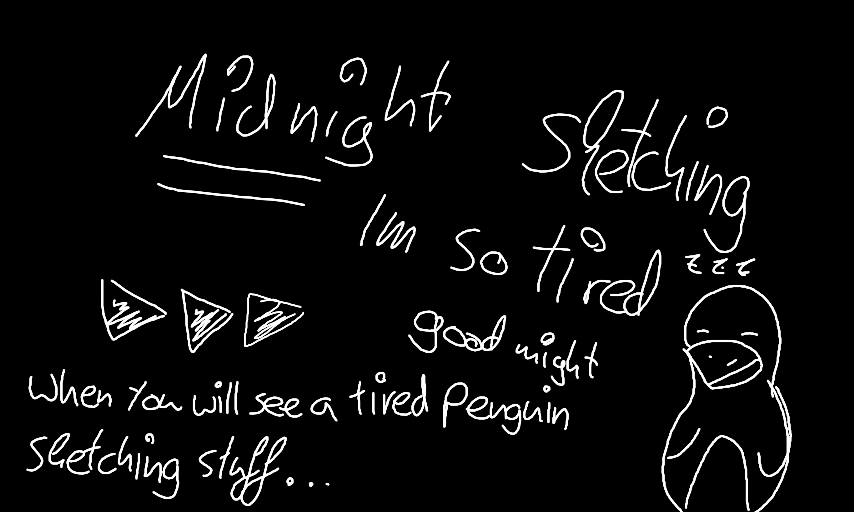 Midnight
Sketching
Im so tired
zzz
good night
when you will see a tired penguin
sketching stuff...